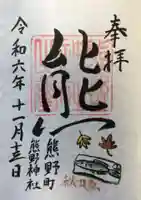 奉拝
熊
熊野町
熊野神社
令和六年十一月十三日